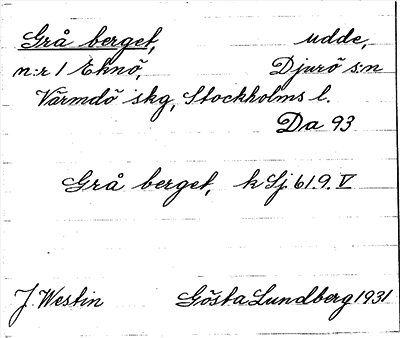 Grå berget, udde,
n:r 1 Eknö, Djurö s:n
Värmdö skg, Stockholms l.
Da 93
Grå berget, k Sj. 619. V
J. Westin Gösta Lundberg 1931